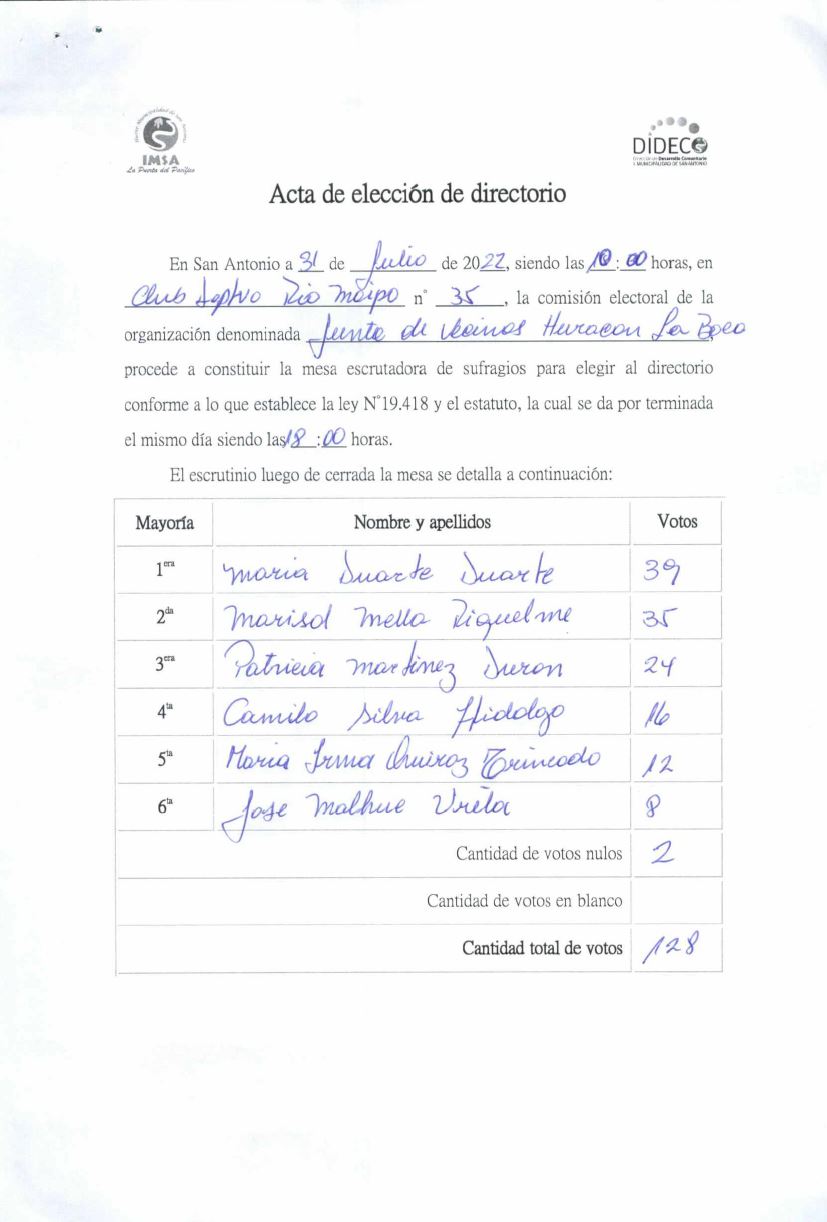 IMSA
La Puerta del Pacífico
DIDECO
Dirección de Desarrollo Comunitario
I. MUNICIPALIDAD DE SAN ANTONIO
Acta de elección de directorio
En San Antonio a 31 de Julio de 2022, siendo las 10:00 horas, en
Club Deptvo Rio Maipo n° 35, la comisión electoral de la
organización denominada Junta de Vecinos Huracan La Boca
procede a constituir la mesa escrutadora de sufragios para elegir al directorio
conforme a lo que establece la ley N°19.418 y el estatuto, la cual se da por terminada
el mismo día siendo las 18:00 horas.
El escrutinio luego de cerrada la mesa se detalla a continuación:
Mayoría Nombre y apellidos Votos
1era Maria Duarte Duarte 39
2da Marisol Mella Riquelme 35
3era Patricia Martinez Duron 24
4ta Camilo Silva Hidalgo 16
5ta Maria Irma Quiroz Trincado 12
6ta Jose Malhue Ureta 8
Cantidad de votos nulos 2
Cantidad de votos en blanco
Cantidad total de votos 128